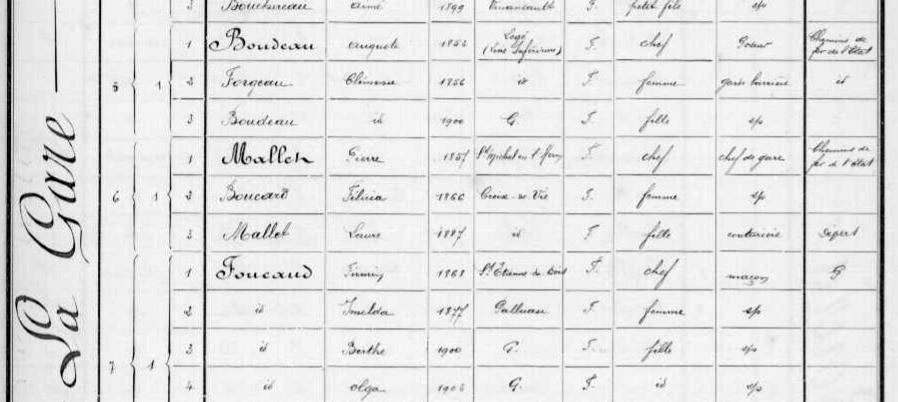 La Gare
3 aimé 1899 F. petit fils sp
1 Boudeau auguste 1852 Legé (Loire Inférieure) F. chef Chemins de fer de l'état
5 1 2 Forgeau Clémence 1856 id F. femme garde barrière id
3 Boudeau id 1900 G. F. fille sp
1 Mallet Pierre 1857 St Michel en l'Herm F. chef chef de gare Chemins de fer de l'état
6 1 2 Boucard 1860 Croix-de-Vie F. femme sp
3 Mallet Laure 1887 id F. fille couturière
1 Foucaud Firmin 1868 St Etienne du Bois F. chef maçon G
2 id Imelda 1877 Palluau F. femme sp
7 1 3 id Berthe 1900 G. F. fille sp
4 id olga G. F. id sp